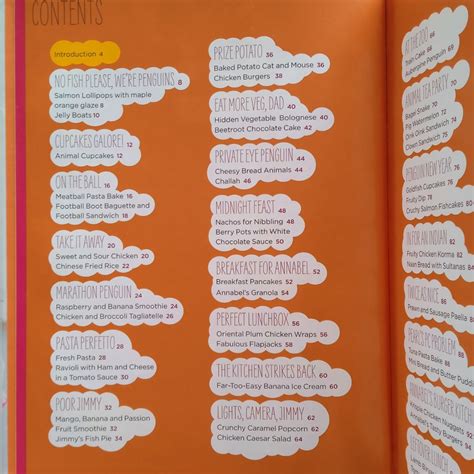 CONTENTS
Introduction 4
NO FISH PLEASE, WE'RE PENGUINS 8
Salmon Lollipops with maple
orange glaze 8
Jelly Boats 10
CUPCAKES GALORE! 12
Animal Cupcakes 12
ON THE BALL 16
Meatball Pasta Bake 16
Football Boot Baguette and
Football Sandwich 18
TAKE IT AWAY 20
Sweet and Sour Chicken 20
Chinese Fried Rice 22
MARATHON PENGUIN 24
Raspberry and Banana Smoothie 24
Chicken and Broccoli Tagliatelle 26
PASTA PERFETTO 28
Fresh Pasta 28
Ravioli with Ham and Cheese
in a Tomato Sauce 30
POOR JIMMY 32
Mango, Banana and Passion
Fruit Smoothie 32
Jimmy's Fish Pie 34
PRIZE POTATO 36
Baked Potato Cat and Mouse 36
Chicken Burgers 38
EAT MORE VEG, DAD 40
Hidden Vegetable Bolognese 40
Beetroot Chocolate Cake 42
PRIVATE EYE PENGUIN 44
Cheesy Bread Animals 44
Challah 46
MIDNIGHT FEAST 48
Nachos for Nibbling 48
Berry Pots with White
Chocolate Sauce 50
BREAKFAST FOR ANNABEL 52
Breakfast Pancakes 52
Annabel's Granola 54
PERFECT LUNCHBOX 56
Oriental Plum Chicken Wraps 56
Fabulous Flapjacks 58
THE KITCHEN STRIKES BACK 60
Far-Too-Easy Banana Ice Cream 60
LIGHTS, CAMERA, JIMMY 62
Crunchy Caramel Popcorn 62
Chicken Caesar Salad 64
AT THE ZOO! 66
Train Cake 66
Aubergine Penguin
ANIMAL TEA PARTY 70
Bagel Snake 70
Pig Watermelon 72
Oink Oink Sandwich
Clown Sandwich 74
PENGUIN NEW YEAR 76
Goldfish Cupcakes 76
Fruity Dip 78
Crunchy Salmon Fishcakes 80
IN FOR AN INDIAN 82
Fruity Chicken Korma 82
Naan Bread with Sultanas 84
TWICE AS NICE
Prawn and Sausage Paella
PEARL'S PC PROBLEM
Tuna Pasta Bake
Mini Bread and Butter
BURGER
Chicken Nuggets